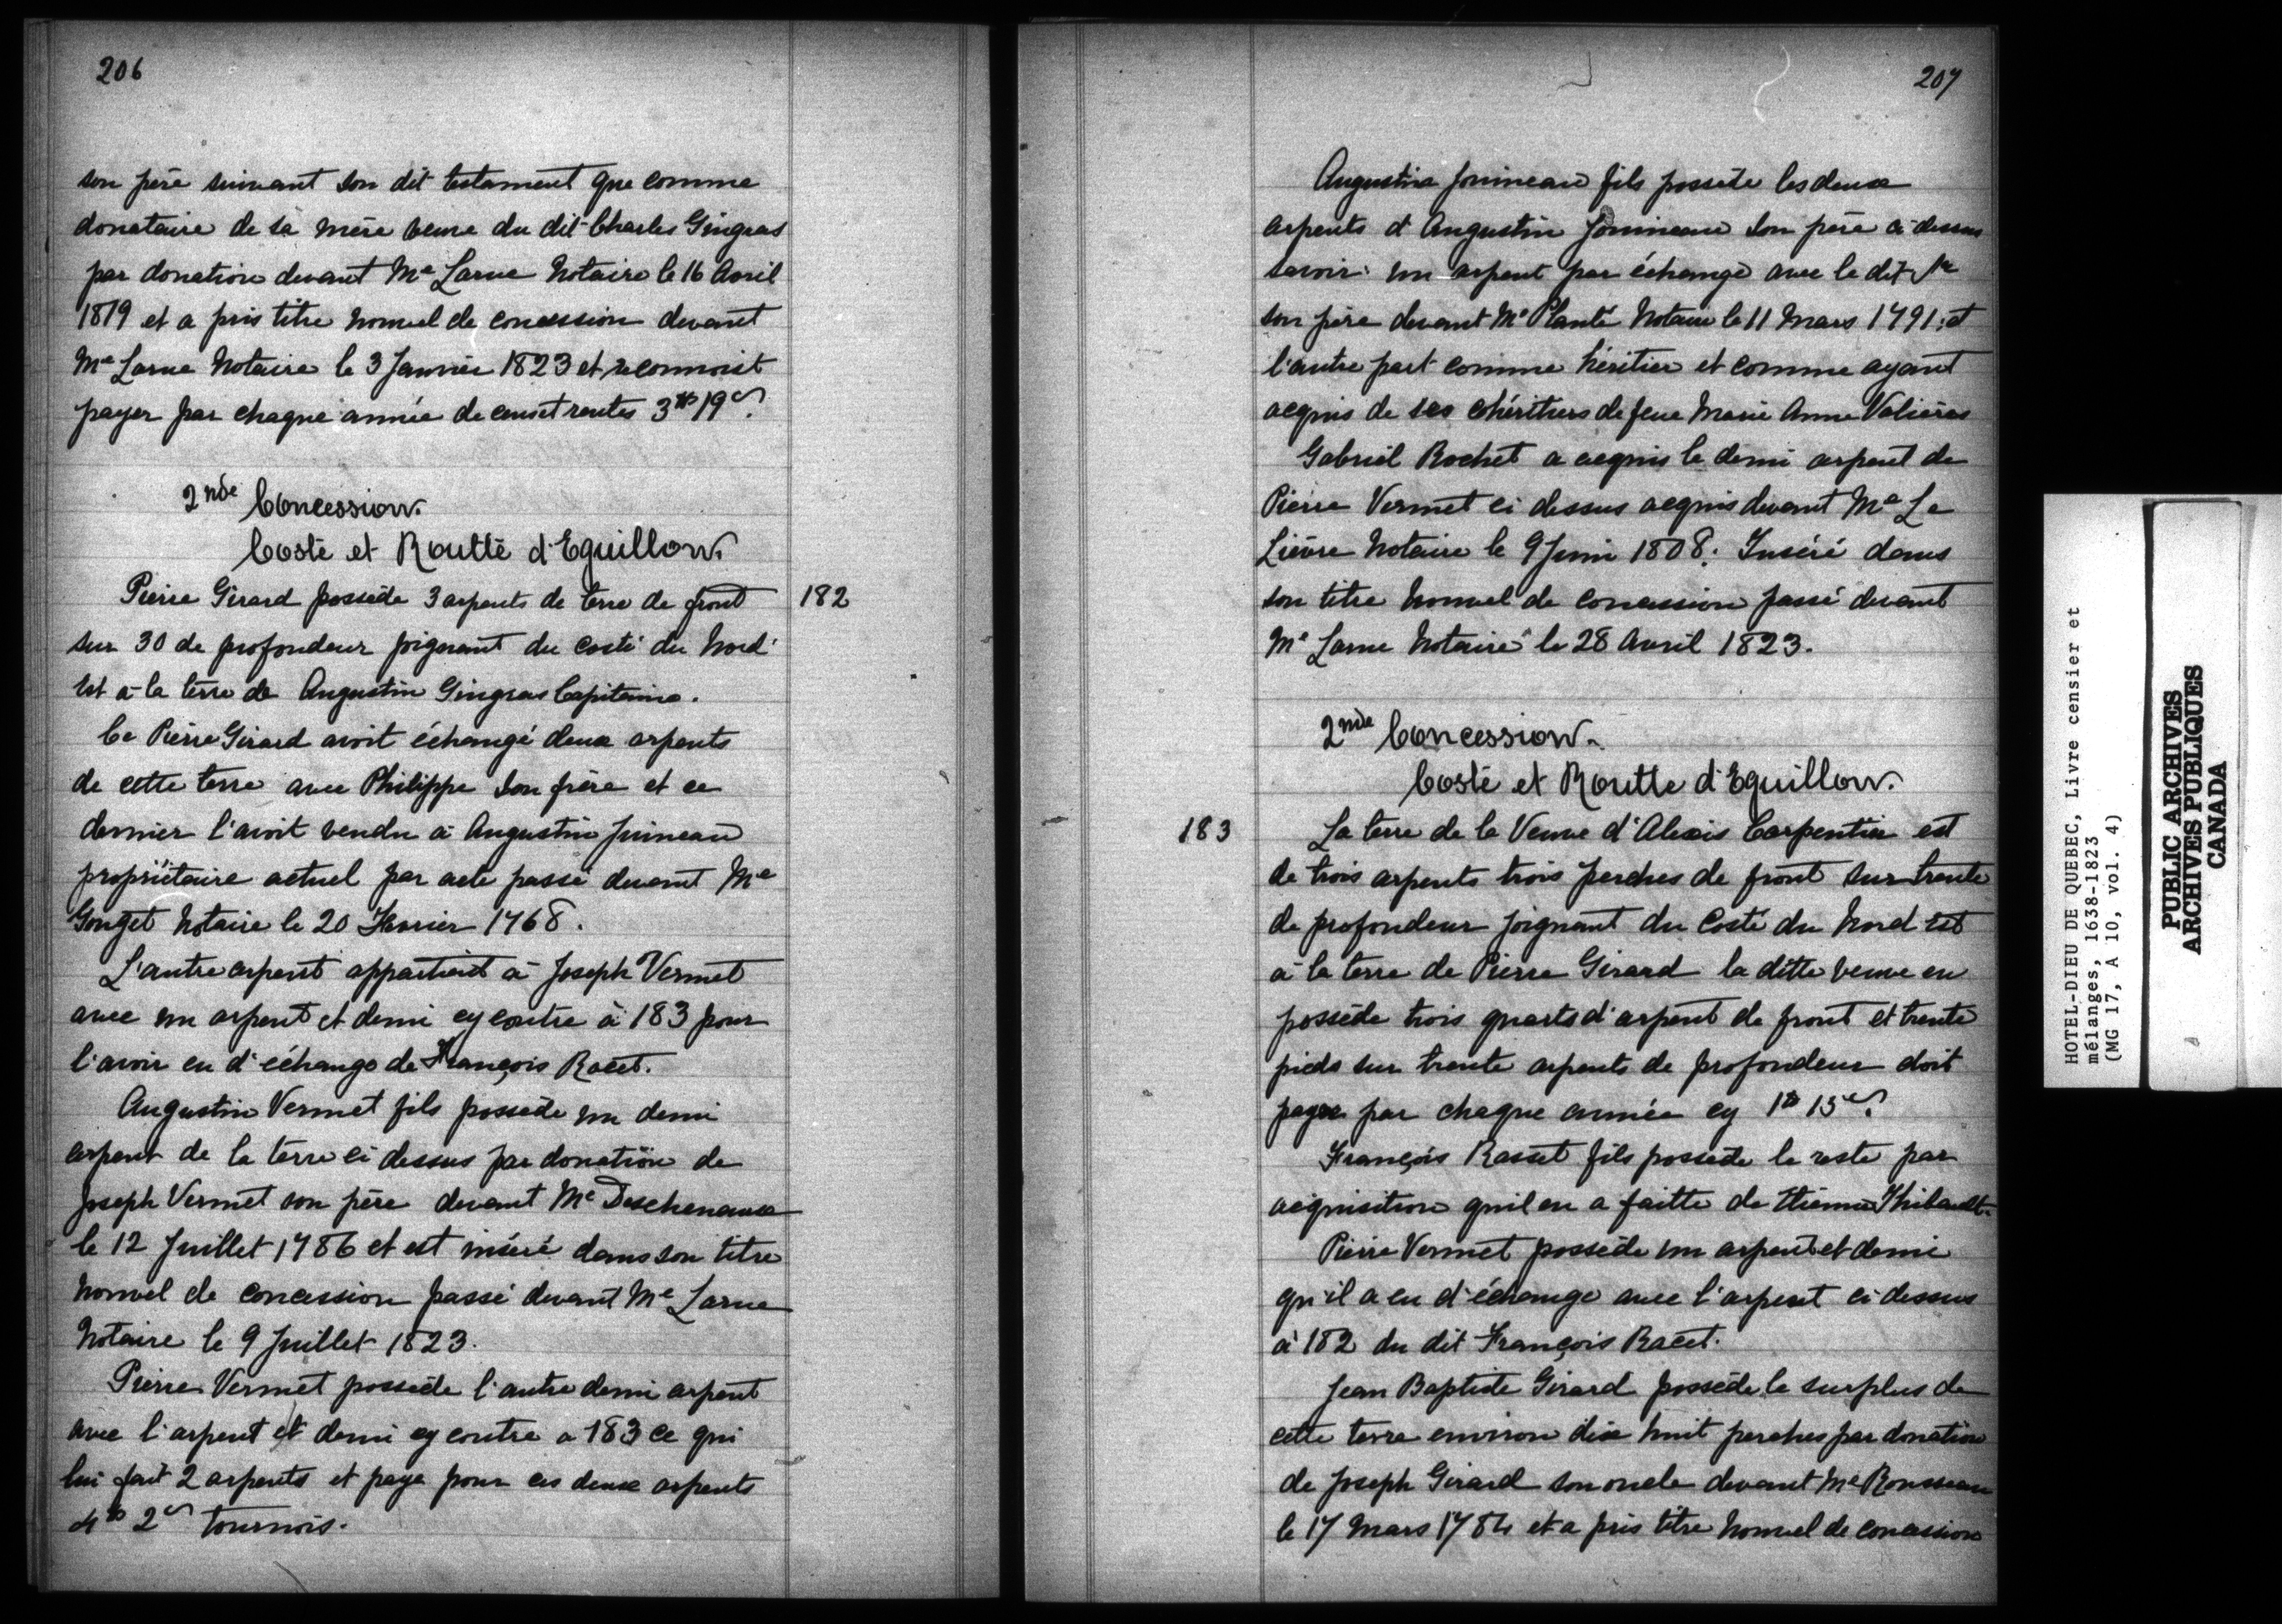 206
son père suivant son dit testament que comme
donataire de sa mère veuve du dit Charles Gingras
par donation devant Me Larue Notaire le 16 Avril
1819 et a pris titre nouvel de concession devant
Me Larue Notaire le 3 Janvier 1823 et reconnoist
payer par chaque année de cens et rentes 3tt 19s.
2nde Concession.
Costé et Routte d'Eguillon.
182
Pierre Girard possède 3 arpents de terre de front
sur 30 de profondeur joignant du costé du Nord
Est à la terre de Augustin Gingras Capitaine.
Ce Pierre Girard avoit échangé deux arpents
de cette terre avec Philippe son frère et ce
dernier l'avoit vendu à Augustin Juineau
propriétaire actuel par acte passé devant Me
Gouget Notaire le 20 Février 1768.
L'autre arpent appartient à Joseph Vermet
avec un arpent et demi cy contre à 183 pour
l'avoir eu d'échange de François Racet.
Augustin Vermet fils possède un demi
arpent de la terre ci dessus par donation de
Joseph Vermet son père devant Me Deschenaux
le 12 Juillet 1786 et est inséré dans son titre
nouvel de concession passé devant Me Larue
Notaire le 9 Juillet 1823.
Pierre Vermet possède l'autre demi arpent
avec l'arpent et demi cy contre a 183 ce qui
lui fait 2 arpents et paye pour ces deux arpents
4tt 2s tournois.
207
Augustin Jouineau fils possède les deux
arpents d'Augustin Jouineau son père ci-dessus
savoir: un arpent par échange avec le dit Sr
son père devant Me Planté Notaire le 11 Mars 1791; et
l'autre part comme héritier et comme ayant
acquis de ses cohéritiers de feue Marie Anne Valières
Gabriel Rochet a acquis le demi arpent de
Pierre Vermet ci dessus acquis devant Me Le
Lièvre Notaire le 9 Juin 1808. Inséré dans
son titre nouvel de concession passé devant
Me Larue Notaire le 28 Avril 1823.
2nde Concession.
Costé et Routte d'Eguillon.
183
La terre de la Veuve d'Alexis Carpentier est
de trois arpents trois perches de front sur trente
de profondeur joignant du Costé du Nord Est
à la terre de Pierre Girard la ditte veuve en
possède trois quarts d'arpent de front et trente
pieds sur trente arpents de profondeur doit
payer par chaque année cy 1tt 15s.
François Rasset fils possède le reste par
acquisition qu'il en a faitte de Etienne Thibault.
Pierre Vermet possède un arpent et demi
qu'il a eu d'échange avec l'arpent ci dessus
à 182 du dit François Racet.
Jean Baptiste Girard possède le surplus de
cette terre environ dix huit perches par donation
de Joseph Girard son oncle devant Me Rousseau
le 17 Mars 1784 et a pris titre nouvel de concession
HOTEL-DIEU DE QUEBEC, Livre censier et
mélanges, 1638-1823
(MG 17, A 10, vol. 4)
PUBLIC ARCHIVES
ARCHIVES PUBLIQUES
CANADA